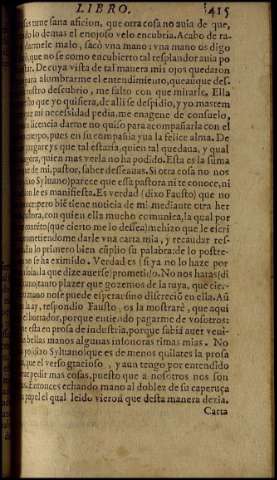 LIBRO. 415
me sana aficion, que otra cosa no auia de que,
do lo demas el enojoso velo encubria. Acabo de ra-
darmele mas, sacò vna mano: vna mano os digo
cò, que no se como encubierto tal resplandor auia po
De cuya vista de tal manera mis ojos quedaron
ara alumbrarme el entendimiento, que aũque des-
nuestro descubrio, me falto con que mirarle. Ella
cho que yo quisiera, de alli se despidio, y yo mas tem
mi necessidad pedia, me enagene de consuelo,
licencia darme no quiso para acompañarla con el
cuerpo, pues en su compañia yua la felice alma. De
lugar ys que tal estaria, quien tal quedaua, y qual
agora, quien mas verla no ha podido. Esta es la suma
de mi, pastor, saber desseauas. Si otra cosa no nos
o Syluano) parece que essa pastora ni te conoce, ni
le es manifiesta. Es verdad (dixo Fausto) que no
pero biẽ tiene noticia de mi mediante otra her
con quien ella mucho comunica, la qual por
(que cierto me lo dessea) me hizo que le escri
metiendome darle vna carta mia, y recaudar res-
lo primero bien cũplio su palabra: de lo postre-
se ha eximido. Verdad es (si ya no lo haze por
la que dize auerse) prometido. No nos haras (di
tanto plazer que gozemos de la tuya, que cier-
mano no se puede esperar sino discreciõ en ella. Aũ
ay, respondio Fausto, os la mostrarè, que aqui
el borrador, porque entiendo pagarme de vosotros:
esta en prosa de industria, porque sabia auer veni-
bellas manos algunas insonoras rimas mias. No
dixo Syluano) que es de menos quilates la prosa
que el verso gracioso, y aun tengo por entendido
pedir mas cosas, puesto que a nosotros nos son
Entonces echando mano al doblez de su caperuça
papel el qual leido vieron que desta manera dezia.
Carta